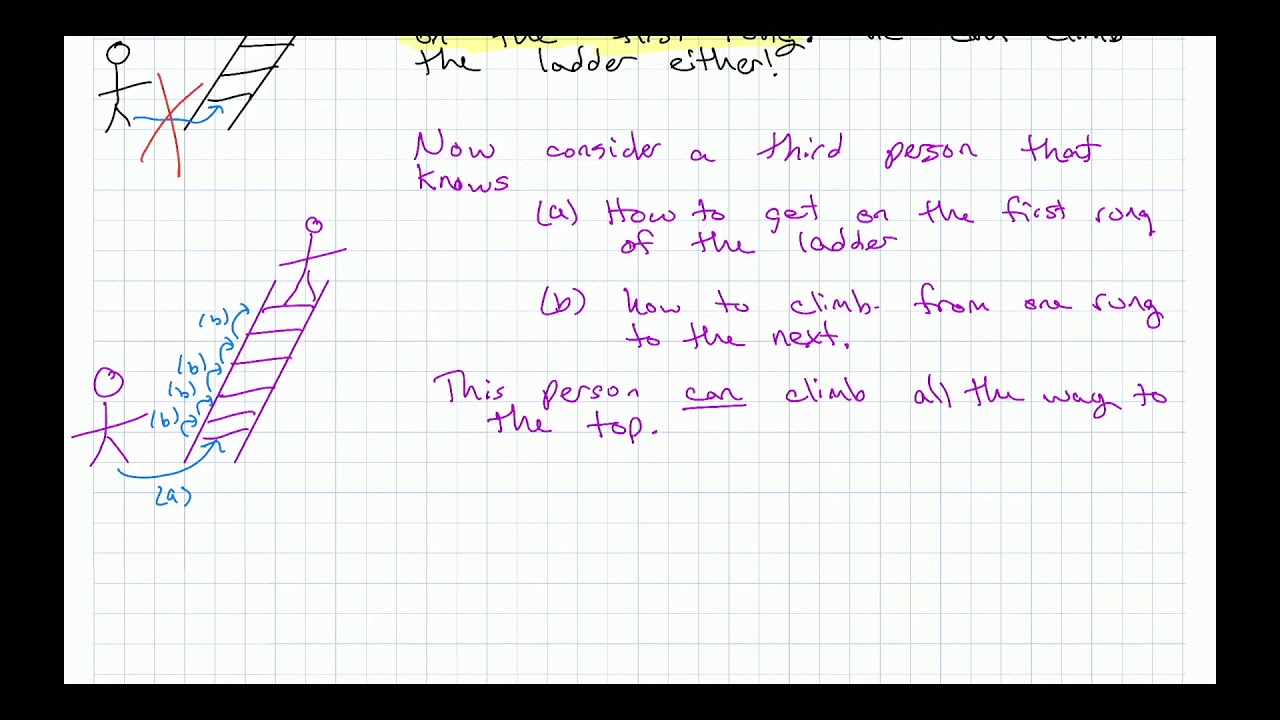 on the first rung. He can't climb
the ladder either!
Now consider a third person that
knows
(a) How to get on the first rung
of the ladder
(b) how to climb from one rung
to the next.
This person can climb all the way to
the top.
(b)
(b)
(b)
(b)
(a)